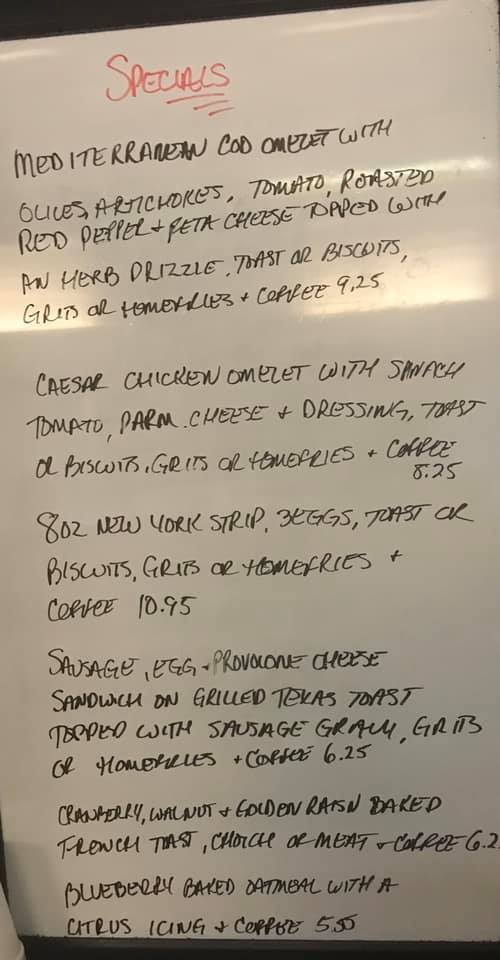 SPECIALS
MEDITERRANEAN COD OMELET WITH
OLIVES, ARTICHOKES, TOMATO, ROASTED
RED PEPPER + FETA CHEESE TOPPED WITH
AN HERB DRIZZLE, TOAST OR BISCUITS,
GRITS OR HOMEFRIES + COFFEE 9.25
CAESAR CHICKEN OMELET WITH SPINACH
TOMATO, PARM. CHEESE + DRESSING, TOAST
OR BISCUITS, GRITS OR HOMEFRIES + COFFEE
8.25
8OZ NEW YORK STRIP, 3EGGS, TOAST OR
BISCUITS, GRITS OR HOMEFRIES +
COFFEE 10.95
SAUSAGE, EGG + PROVOLONE CHEESE
SANDWICH ON GRILLED TEXAS TOAST
TOPPED WITH SAUSAGE GRAVY, GRITS
OR HOMEFRIES + COFFEE 6.25
CRANBERRY, WALNUT + GOLDEN RAISN BAKED
FRENCH TOAST, CHOICE OF MEAT + COFFEE 6.2
BLUEBERRY BAKED OATMEAL WITH A
CITRUS ICING + COFFEE 5.55